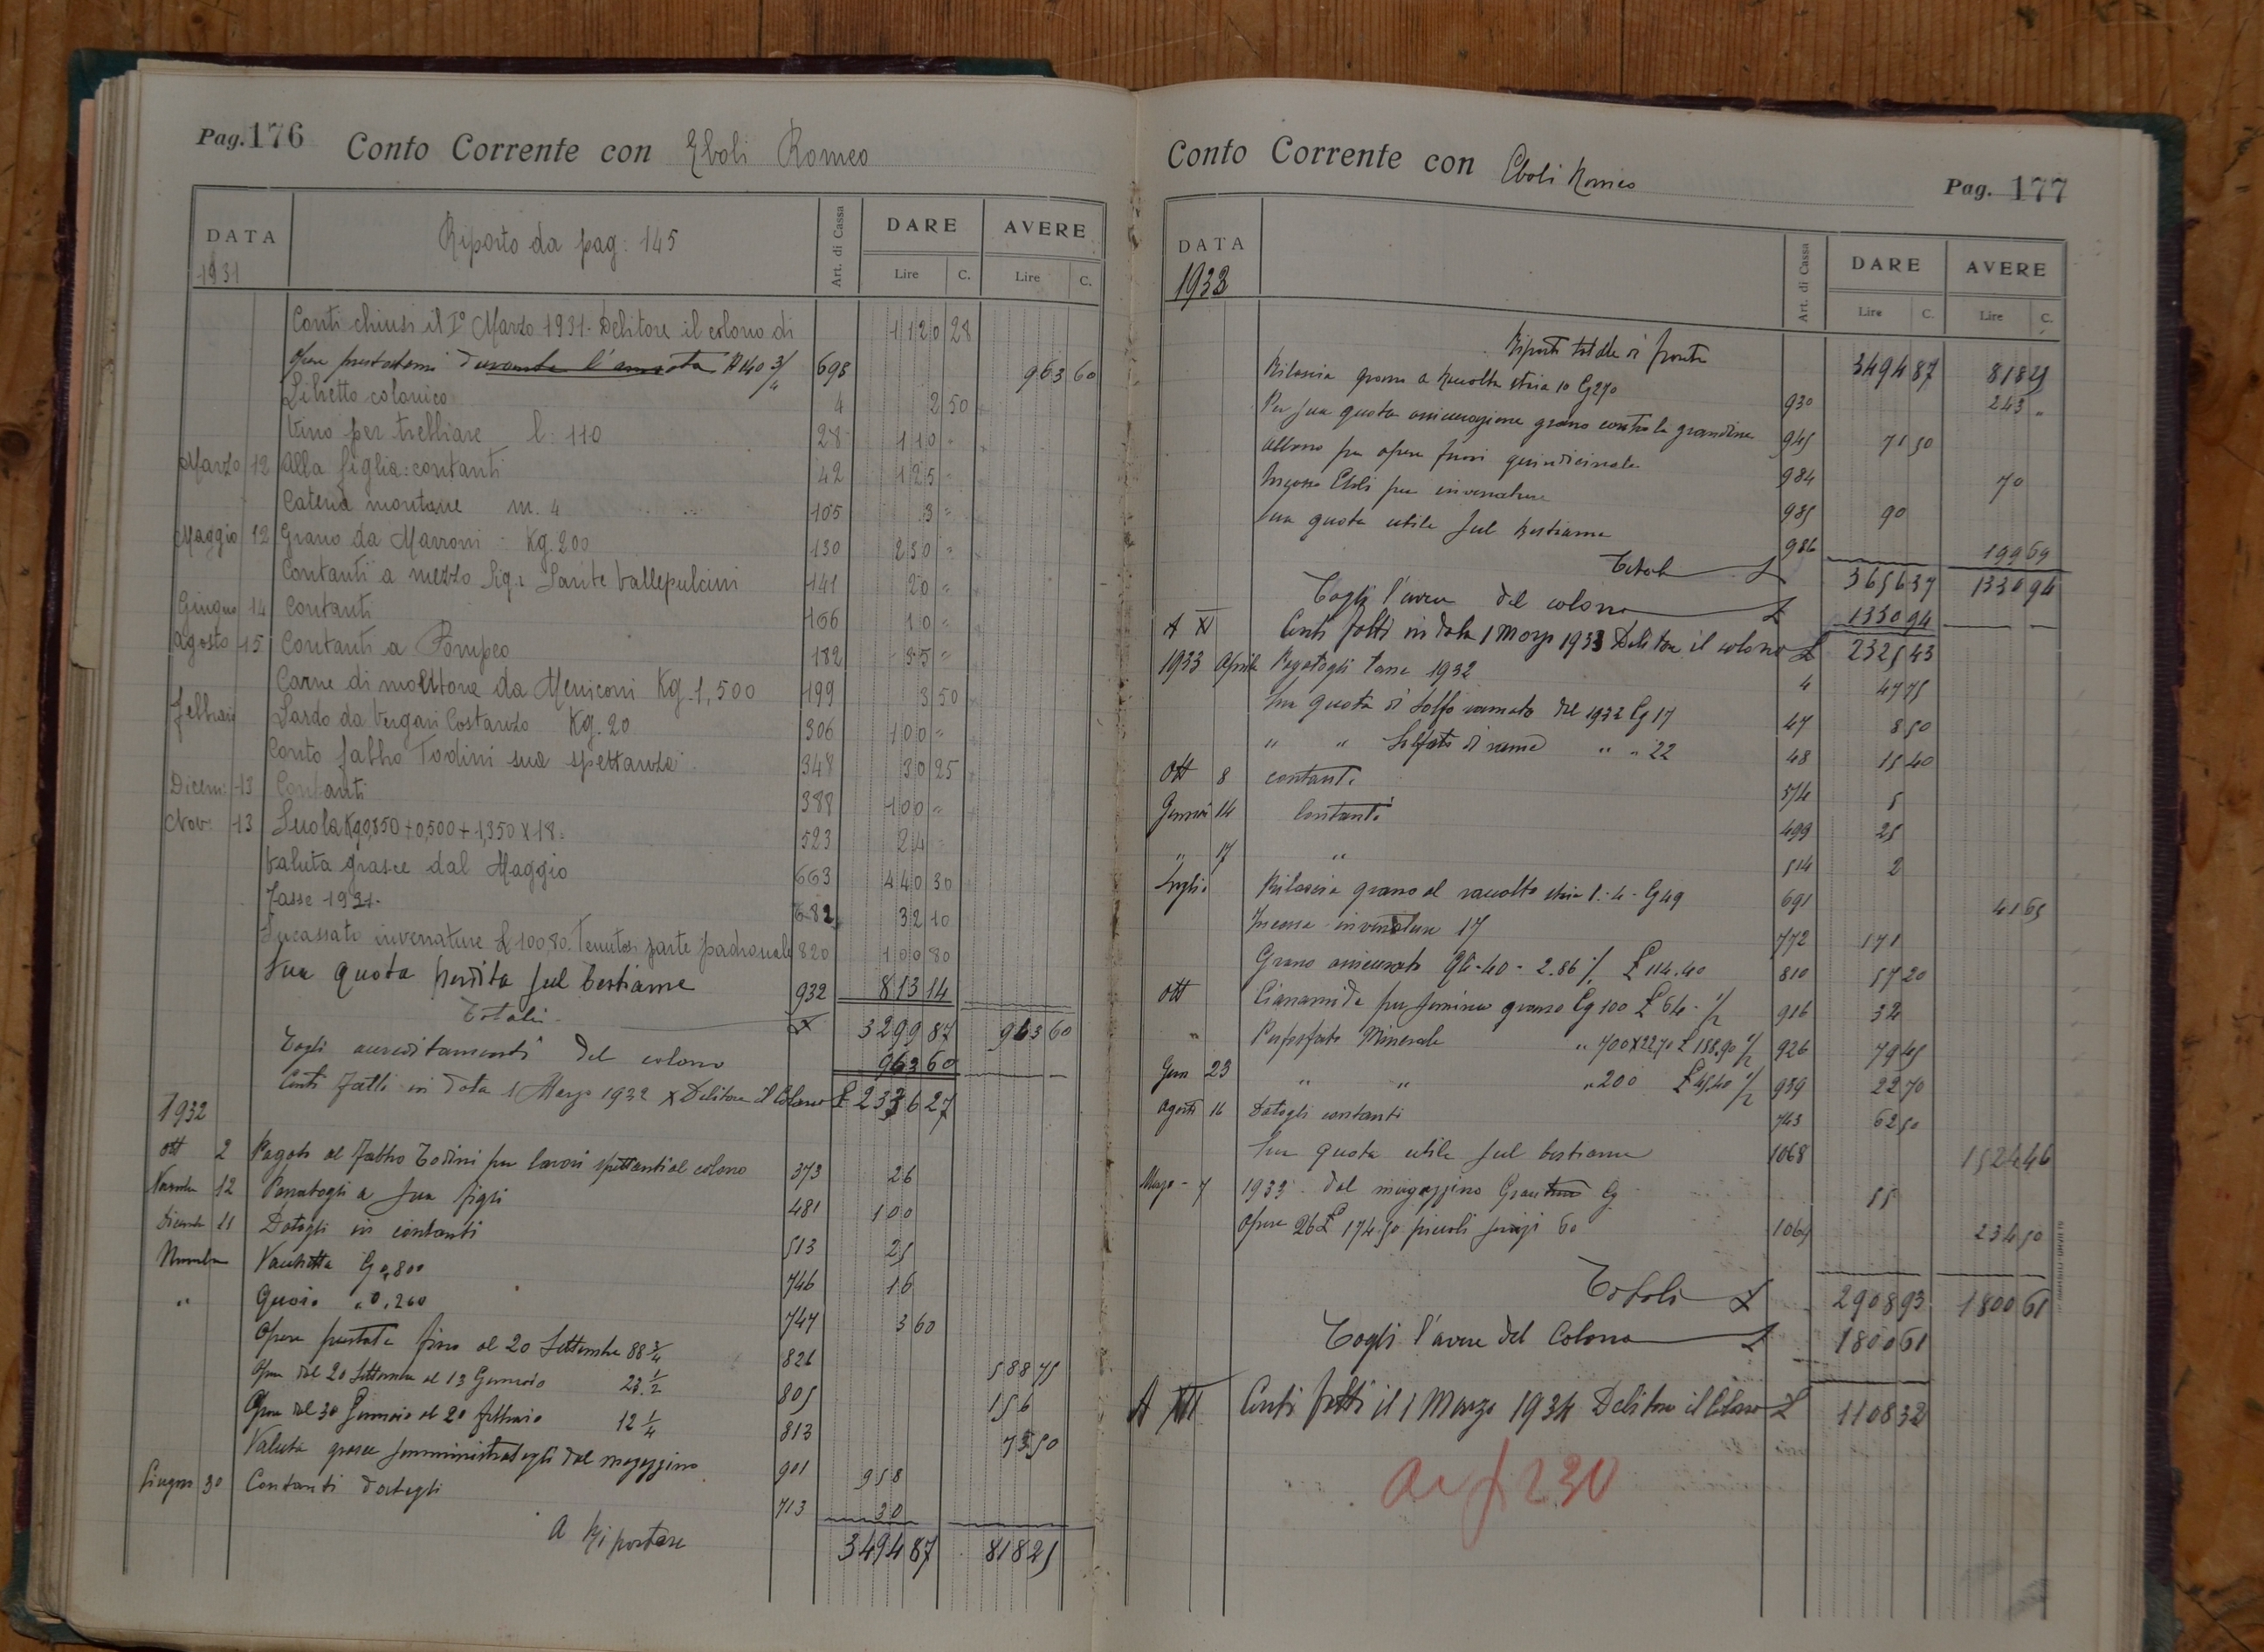 Pag. 176 Conto Corrente con Eboli Romeo
DATA Riporto da pag: 145 Art. di Cassa DARE AVERE
1931 Lire C. Lire C.
Conti chiusi il I° Marzo 1931 - Debitore il colono di 1120 28
opere prestatemi durante l'annata N 140 3/4 698 963 60
Libretto colonico 4 2 50
Vino per trebbiare l. 110 28 110 "
Marzo 12 Alla figlia: contanti 42 125 "
Catena montone m. 4 105 3 "
Maggio 12 Grano da Marroni - Kg. 200 130 230 "
Contanti a mezzo Sig. Sante Vallepulcini 141 20 "
Giugno 14 Contanti 166 10 "
Agosto 15 Contanti a Pompeo 182 35 "
Carne di montone da Meniconi Kg. 1,500 199 3 50
Febbraio Lardo da Vergari Costanzo Kg. 20 306 100 "
Conto fabbro Todini sua spettanza 348 30 25
Dicem: 13 Contanti 388 100 "
Nov: 13 Suola Kg 0,850 + 0,500 + 1,350 x 18 = 523 24 "
Valuta grasce dal Maggio 663 440 30
Tasse 1931 - 682 32 10
Incassato invernature £ 100,80. Tenutosi parte padronale 820 100 80
Sua quota perdita sul bestiame 932 813 14
Totali £ 3299 87 963 60
Togli accreditamenti del colono 963 60
Conti fatti in data 1 Marzo 1932 x Debitore il Colono £ 2336 27
1932
Ott 2 Pagato al fabbro Todini per lavori spettanti al colono 373 26
Novembre 12 a sua figli 481 100
Dicembre 21 Datogli in contanti 513 25
Novembre Vacchetta Kg 0,800 746 16
" Quoio " 0,260 747 3 60
Opere prestate fino al 20 Settembre 88 3/4 821 588 75
Opere dal 20 Settembre al 13 Gennaio 23 1/2 805 156
Opere dal 30 Gennaio al 20 febbraio 12 1/4 813 73 50
Valuta grasce somministrategli dal magazzino 901 958
Giugno 30 Contanti datogli 713 30
A Riportare 3494 87 818 25
Conto Corrente con Eboli Romeo Pag. 177
DATA Art. di Cassa DARE AVERE
1933 Lire C. Lire C.
Riporti totale di fronte 3494 87 818 25
Rilascia grano a raccolta staia 10 Kg 270 930 243 "
Per sua quota assicurazione grano contro la grandine 945 71 50
Abbono per opere fuori quindicinale 984 70
Eboli per invernature 985 90
Sua quota utile sul bestiame 986 199 69
Totali £ 3656 37 1330 94
Togli l'avere del colono £ 1330 94
A XI Conti fatti in data 1 Marzo 1933 Debitore il colono £ 2325 43
1933 Aprile Pagatogli tasse 1932 4 47 75
Sua quota di Solfo ramato del 1932 Kg 17 47 8 50
" " Solfato di rame " " 22 48 15 40
Ott 8 contanti 374 5
Gennaio 14 Contanti 499 25
" 17 " 514 2
Luglio Rilascia grano al raccolto staia 1:4 - Kg 49 691 41 65
Incasso invernature 17 772 171
Grano assicurato Qli 40 - 2.86 % £ 114.40 810 57 20
Ott Cianamide per semina grano Kg 100 £ 64 - 1/2 916 32
" Perfosfato Minerale " 700 x 22.70 £ 158.90 1/2 926 79 45
Genn 23 " " " 200 £ 45.40 1/2 939 22 70
Agosto 16 Datogli contanti 743 62 50
Sua quota utile sul bestiame 1068 1524 46
Marzo - 7 1933 dal magazzino Kg 55
Opere 26 £ 174.50 piccoli servizi 60 1065 234 50
Totali £ 2908 93 1800 61
Togli l'avere del Colono £ 1800 61
A XII Conti fatti il 1 Marzo 1934 Debitore il Colono £ 1108 32
a p 230